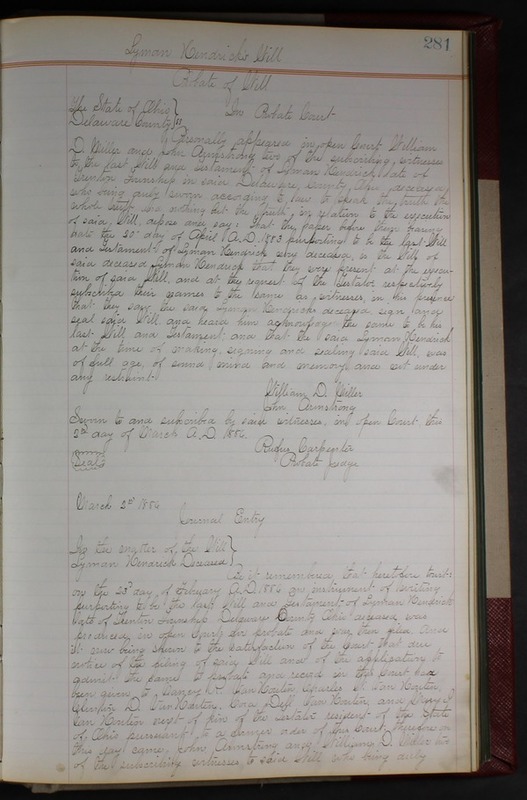 281
Lyman Hendrick's Will
Probate of Will
The State of Ohio } In Probate Court
Delaware County } ss
Personally appeared in open Court William
D. Miller and John Armstrong two of the subscribing witnesses
to the last Will and Testament of Lyman Hendrick late of
Trenton Township in said Delaware County Ohio deceased,
who being duly sworn according to law to speak the truth the
whole truth and nothing but the truth in relation to the execution
of said Will, depose and say: that the paper before them bearing
date the 30th day of April A.D. 1883 purporting to be the last Will
and Testament of Lyman Hendrick now deceased, is the Will of
said deceased Lyman Hendrick that they were present at the execu-
tion of said Will, and at the request of the Testator respectively
subscribed their names to the same as witnesses in his presence
that they saw the said Lyman Hendrick deceased, sign and
seal said Will and heard him acknowledge the same to be his
last Will and Testament and that the said Lyman Hendrick
at the time of making, signing and sealing said Will, was
of full age, of sound mind and memory, and not under
any restraint.
William D. Miller
John Armstrong
Sworn to and subscribed by said witnesses, in open Court, this
3d day of March A.D. 1884.
Seal
Rufus Carpenter
Probate Judge
March 3d 1884
Journal Entry
In the matter of the Will }
Lyman Hendrick Deceased }
Be it remembered that heretofore to wit:
on the 23d day of February A.D. 1884 an instrument of writing
purporting to be the last Will and Testament of Lyman Hendrick
late of Trenton Township Delaware County Ohio deceased was
produced in open Court for probate and was then filed, And
it now being shewn to the satisfaction of the Court that due
notice of the filing of said Will and of the application to
admit the same to probate and record in this Court has
been given to W. Van Houten, Charles Van Houten,
D. Van Houten, Cora Dell Van Houten, and
Van Houten next of kin of the testator resident of the State
of Ohio pursuant to a former order of this Court Therefore on
this day came John Armstrong and William D. Miller two
of the subscribing witnesses to said Will who being duly